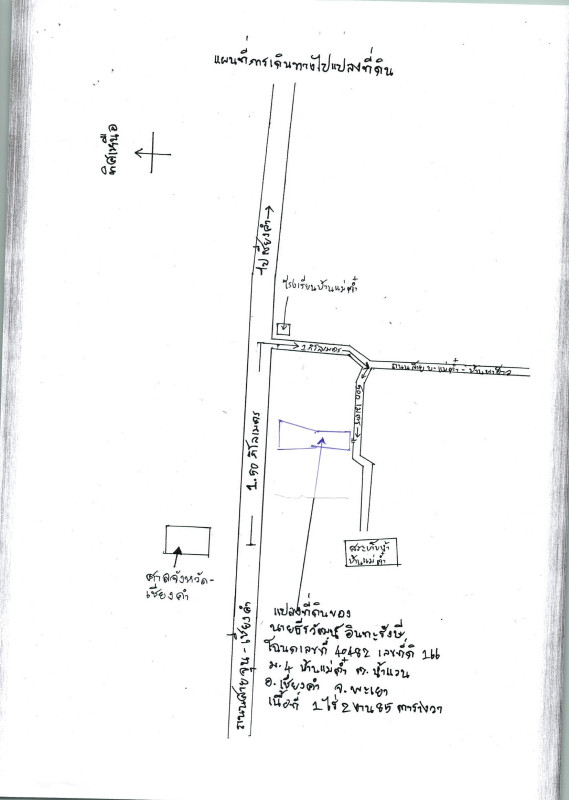 แผนที่การเดินทางไปแปลงที่ดิน
ทิศเหนือ
ไปเชียงคำ
โรงเรียนบ้านแม่ต๋ำ
1 กิโลเมตร
ถนนสาย บ.แม่ต๋ำ - บ้าน
500 เมตร
1.50 กิโลเมตร
สระเก็บน้ำ
บ้านแม่ต๋ำ
ศาลจังหวัด-
เชียงคำ
ถนนสายจุน - เชียงคำ
แปลงที่ดินของ
นายธีรวัฒน์ อินทะรังษี
โฉนดเลขที่ 40482 เลขที่ดิ 166
ม.4 บ้านแม่ต๋ำ ต.น้ำแวน
อ.เชียงคำ จ.พะเยา
เนื้อที่ 1 ไร่ 2 งาน 85 ตารางวา